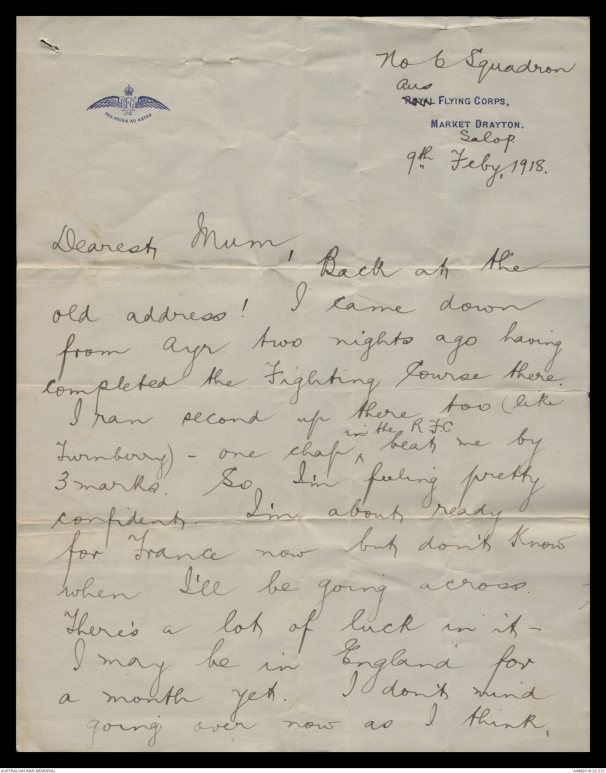 No 6 Squadron
Aus
ROYAL FLYING CORPS,
MARKET DRAYTON.
Salop.
9th Feby, 1918.
PER ARDUA AD ASTRA
Dearest Mum,
Back at the
old address! I came down
from Ayr two nights ago having
completed the Fighting Course there.
I ran second up there too (like
Turnberry) - one chap in the R F C beat me by
3 marks. So I'm feeling pretty
confident. I'm about ready
for France now but don't know
when I'll be going across.
There's a lot of luck in it -
I may be in England for
a month yet. I don't mind
going over now as I think,
AUSTRALIAN WAR MEMORIAL